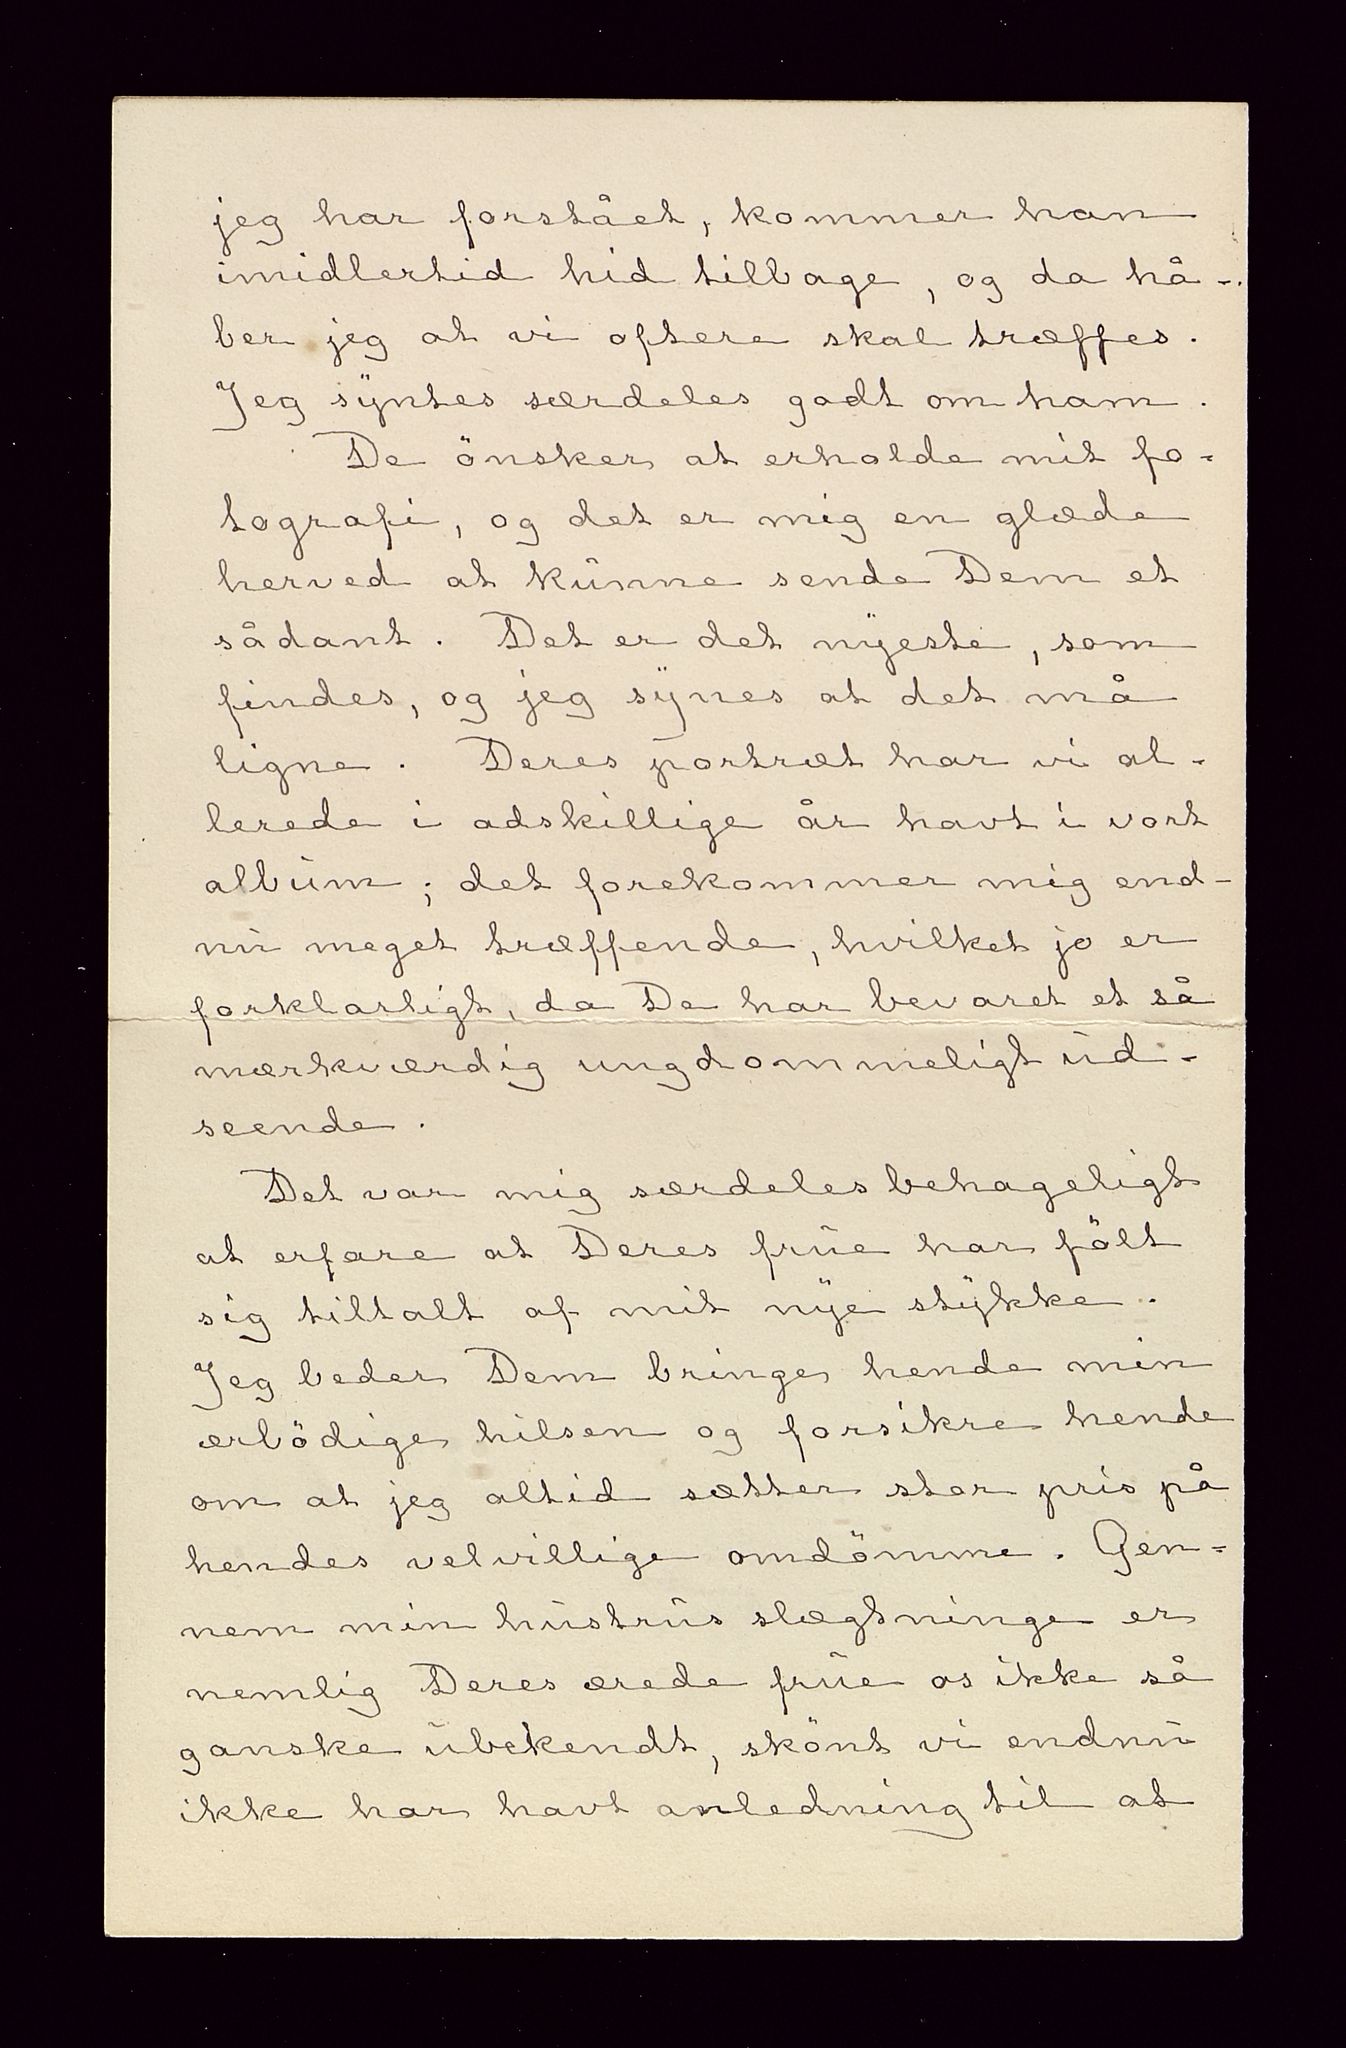 jeg har forstået, kommer han
imidlertid hid tilbage, og da hå-
ber jeg at vi oftere skal træffes.
Jeg syntes særdeles godt om ham.
De önsker at erholde mit fo-
tografi, og det er mig en glæde
herved at kunne sende Dem et
sådant. Det er det nyeste, som
findes, og jeg synes at det må
ligne. Deres portræt har vi al-
lerede i adskillige år havt i vort
album; det forekommer mig end-
nu meget træffende, hvilket jo er
forklarligt, da De har bevaret et så
mærkværdig ungdommeligt ud-
seende.
Det var mig særdeles behageligt
at erfare at Deres frue har fölt
sig tiltalt af mit nye stykke.
Jeg beder Dem bringe hende min
ærbödige hilsen og forsikre hende
om at jeg altid sætter stor pris på
hendes velvillige omdömme. Gen-
nem min hustrus slægtninge er
nemlig Deres ærede frue os ikke så
ganske ubekendt, skönt vi endnu
ikke har havt anledning til at